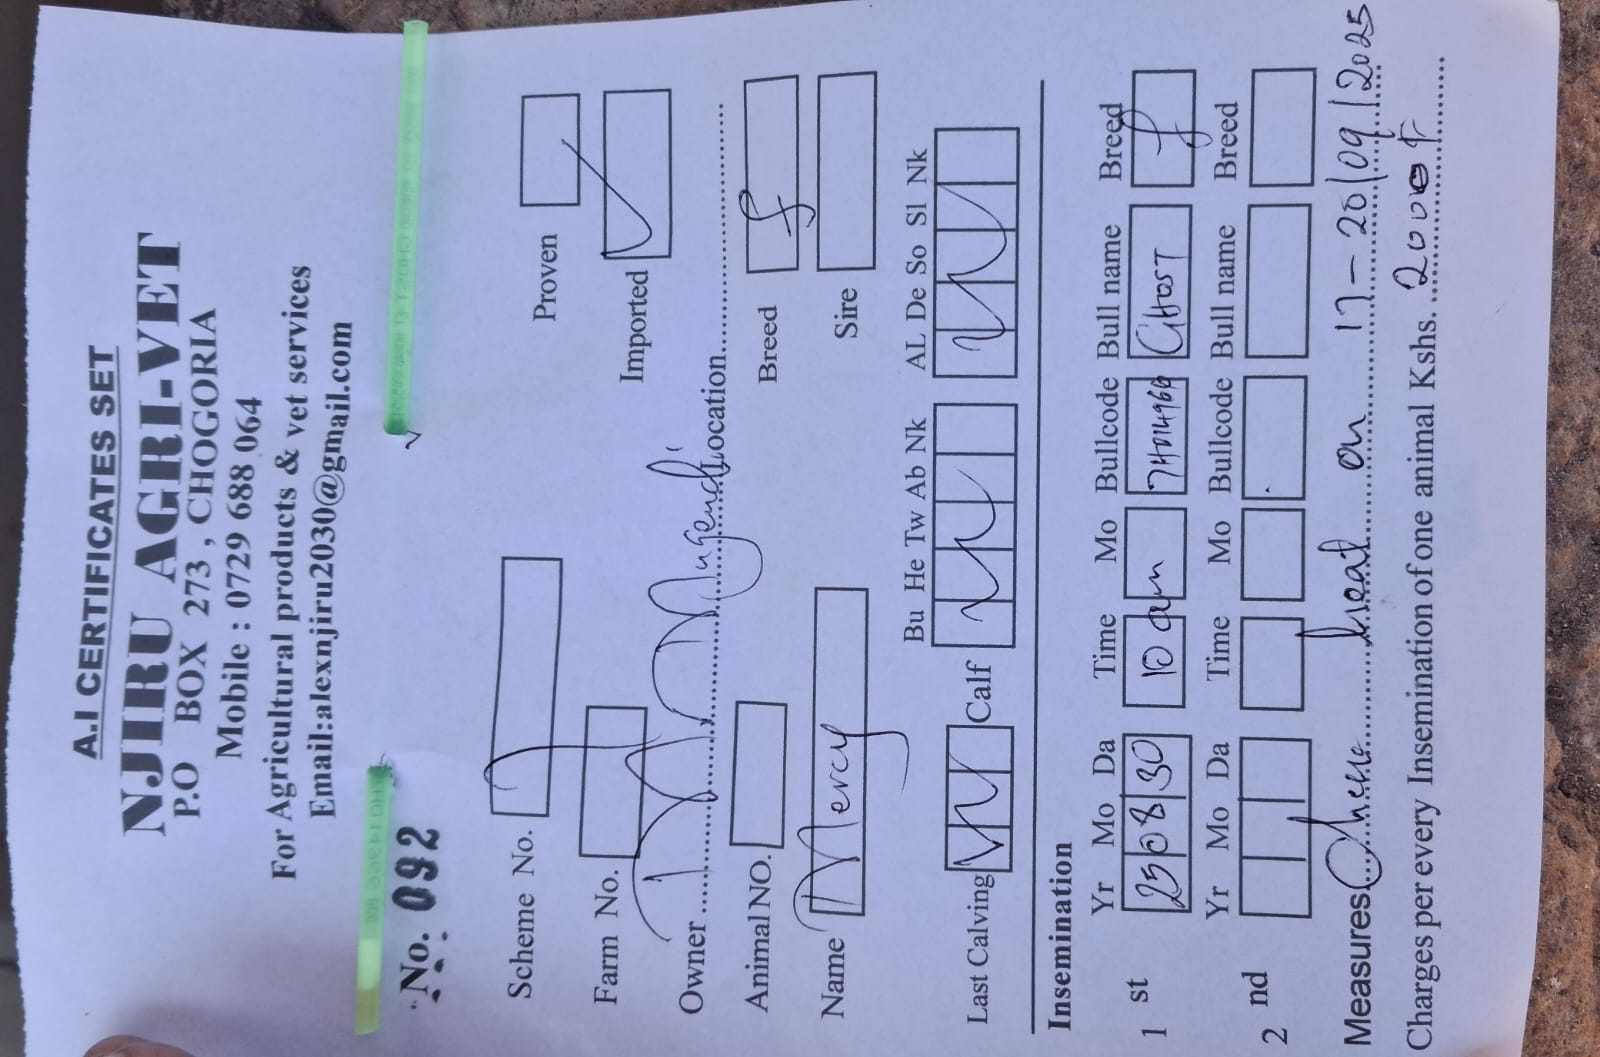 A.I CERTIFICATES SET
NJIRU AGRI-VET
P.O BOX 273 , CHOGORIA
Mobile : 0729 688 064
For Agricultural products & vet services
Email:alexnjiru2030@gmail.com
No. 092
Scheme No.
Proven
Farm No.
Imported
Owner Mugendi Location
Animal NO. Breed f
Name Mercy Sire
Bu He Tw Ab Nk AL De So Sl Nk
Last Calving Calf
Insemination
Yr Mo Da Time Mo Bullcode Bull name Breed
1 st 25 08 30 10 am GHOST f
Yr Mo Da Time Mo Bullcode Bull name Breed
2 nd
Measures heat on 17 - 20/09/2025
Charges per every Insemination of one animal Kshs.